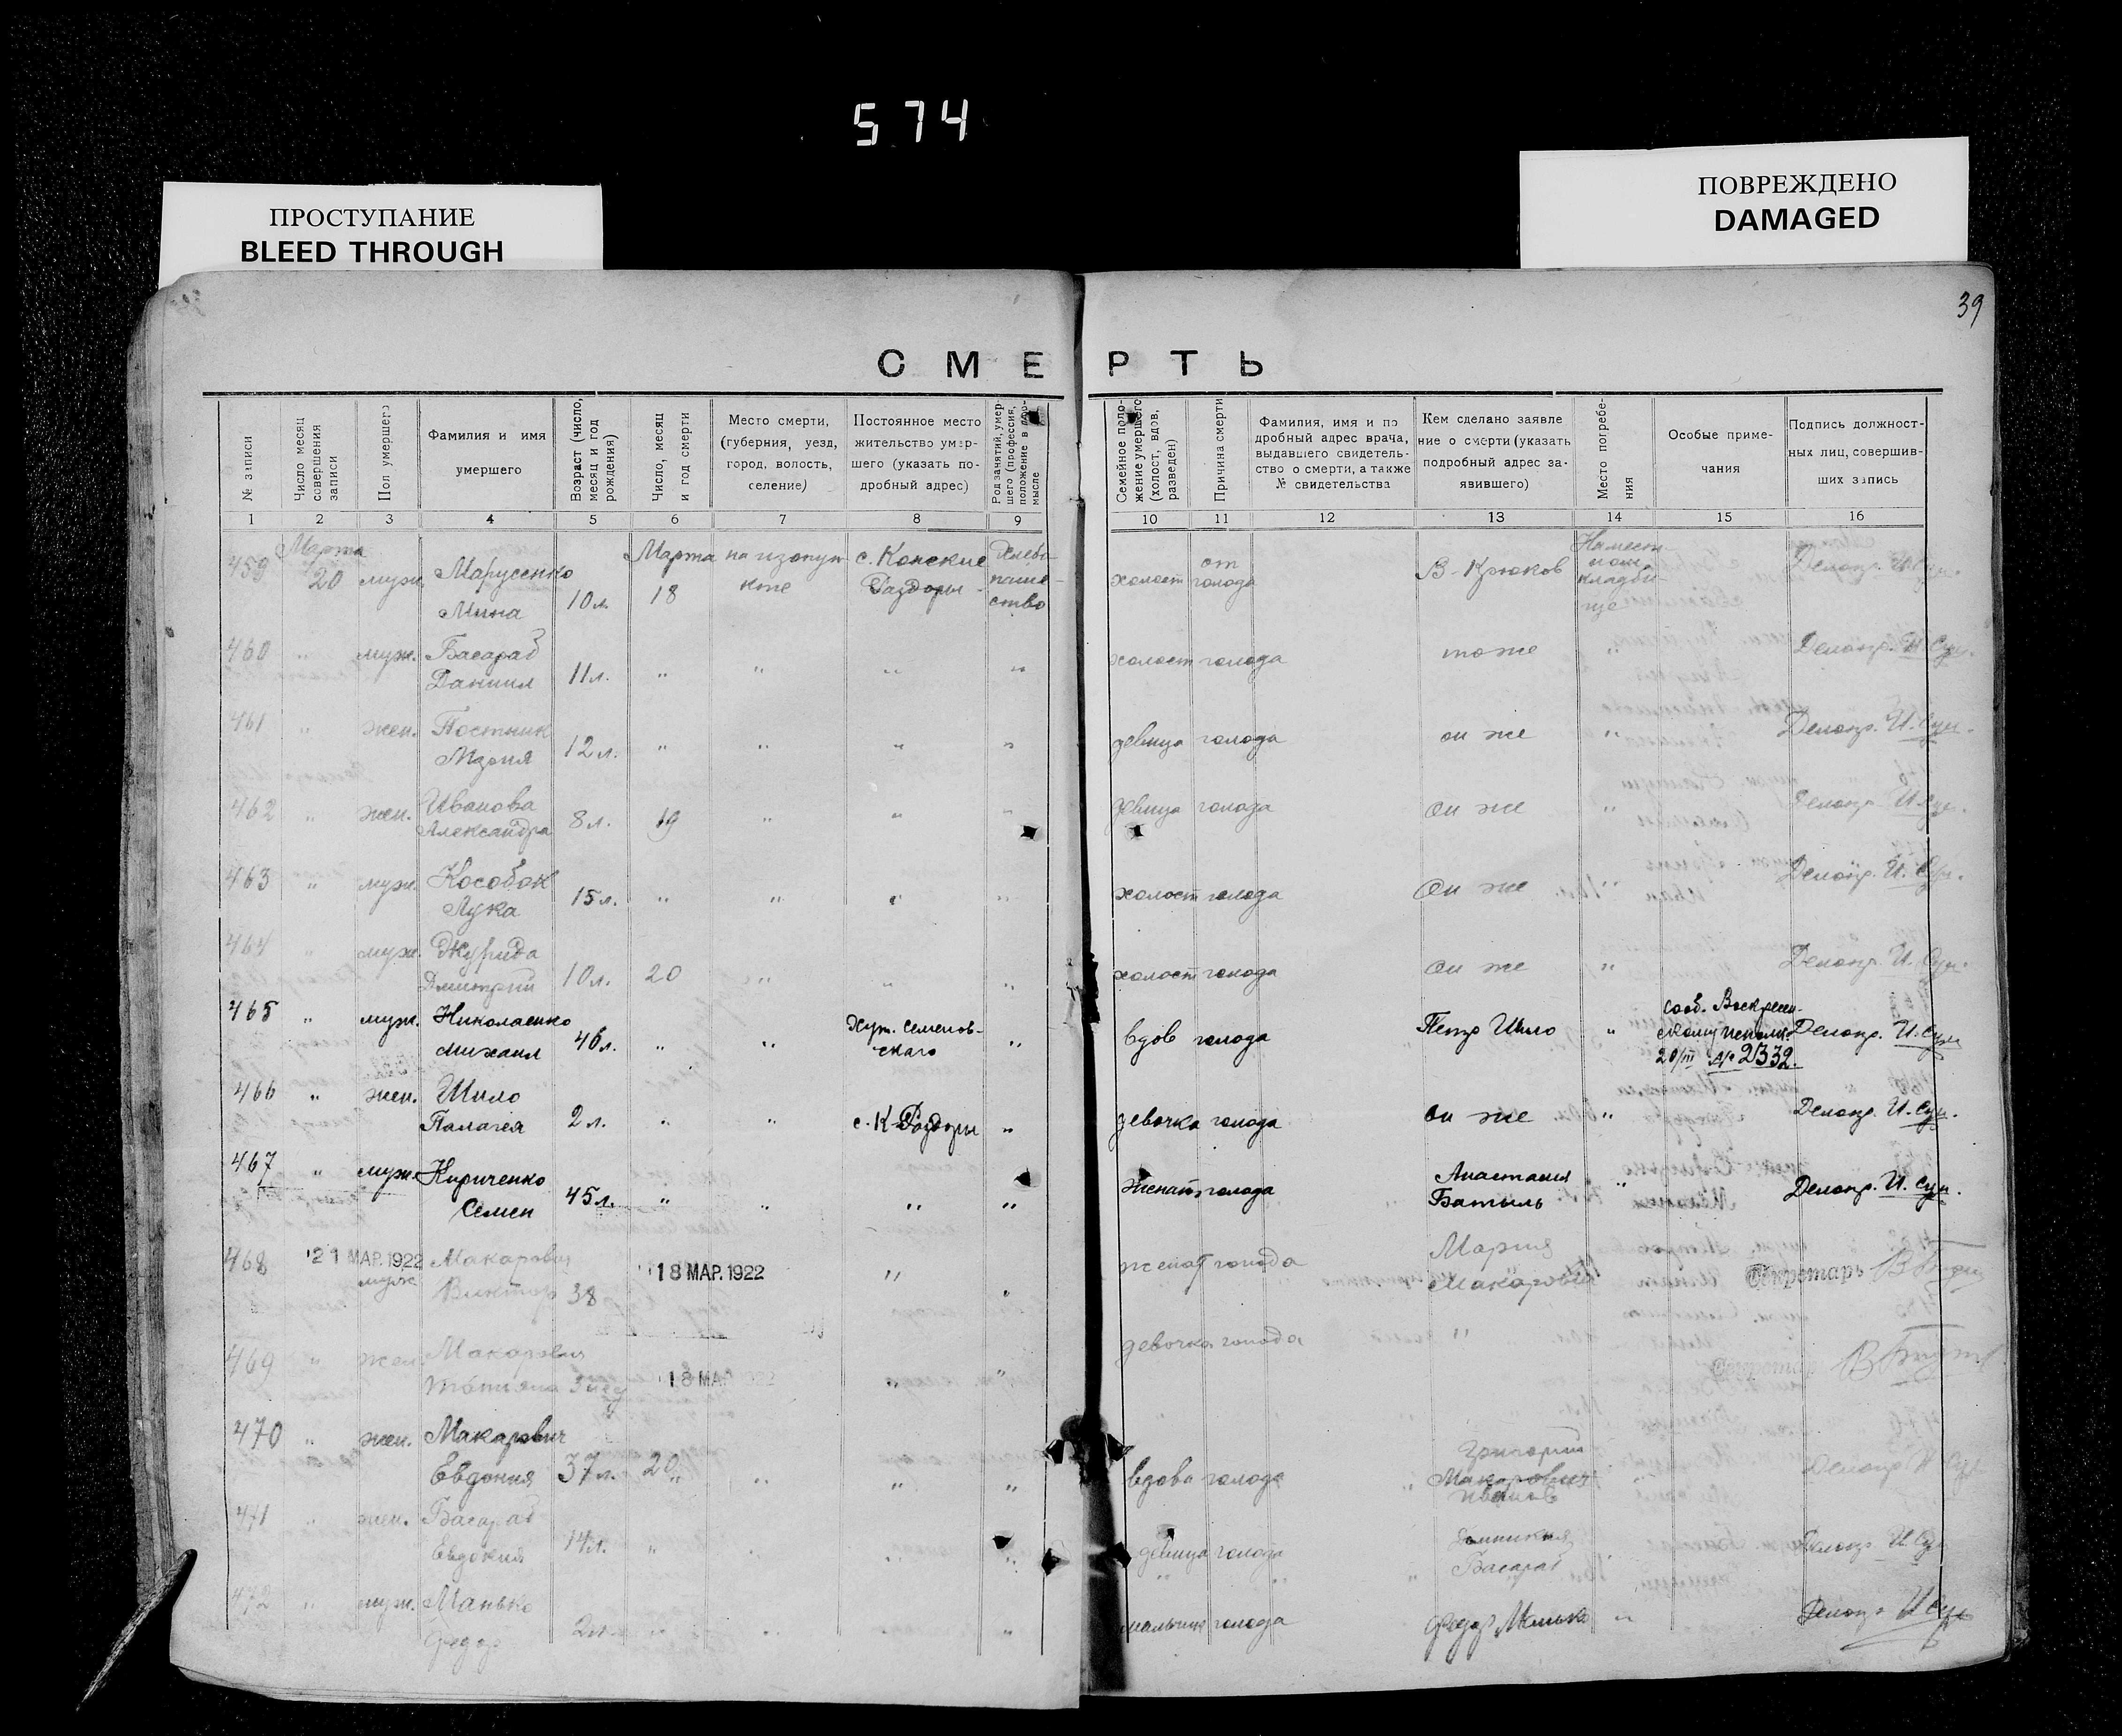 574
ПРОСТУПАНИЕ
BLEED THROUGH
ПОВРЕЖДЕНО
DAMAGED
39
СМЕРТЬ
№ записи
Число месяц совершения записи
Пол умершего
Фамилия и имя умершего
Возраст (число, месяц и год рождения)
Число, месяц и год смерти
Место смерти, (губерния, уезд, город, волость, селение)
Постоянное место жительство умершего (указать подробный адрес)
Род занятий, умершего (профессия, положение в промысле
Семейное положение умершего (холост, вдов, разведен)
Причина смерти
Фамилия, имя и подробный адрес врача, выдавшего свидетельство о смерти, а также № свидетельства
Кем сделано заявление о смерти (указать подробный адрес заявившего)
Место погребения
Особые примечания
Подпись должностных лиц, совершивших запись
1 2 3 4 5 6 7 8 9 10 11 12 13 14 15 16
459 Марта 20 муж. Марусенко Мина 10 л. Марта 18 на изопункте с. Конские Раздоры Хлебопашество холост от голода В. Крюков На местном кладбище Делопр. И. Сун.
460 " муж. Басараб Даниил 11 л. " " " " холост голода тоже " Делопр. И. Сун.
461 " жен. Постник Мария 12 л. " " " " девица голода он же " Делопр. И. Сун.
462 " жен. Иванова Александра 8 л. 19 " " " девица голода он же " Делопр. И. Сун.
463 " муж. Кособок Лука 15 л. " " " " холост голода он же " Делопр. И. Сун.
464 " муж. Джурида Дмитрий 10 л. 20 " " " холост голода он же " Делопр. И. Сун.
465 " муж. Николаенко Михаил 46 л. " " Хут. Семеновскаго " вдов голода Петр Шило " сооб. Воскресенскому исполк. 20/III № 2332. Делопр. И. Сун
466 " жен. Шило Палагея 2 л. " " с. К-Раздоры " девочка голода он же " Делопр. И. Сун.
467 " муж. Кириченко Семен 45 л. " " " " женат голода Анастасия Батыль " Делопр. И. Сун.
468 21 МАР. 1922 муж Макарович Виктор 38 18 МАР. 1922 " " женат голода Мария Макарович Секретарь
469 " жен Макарович Татьяна 18 МАР 1922 " " девочка голода " Секретарь
470 " жен. Макарович Евдокия 37 л. 20 " " " " вдова голода Григорий Макарович Иванов " Делопр И Сун
471 " жен. Басараб Евдокия 14 л. " " " " девица голода Басараб Делопр И Сун
472 " муж. Манько Федор 2 л. " " " " мальчик голода Федор Манько " Делопр И Сун